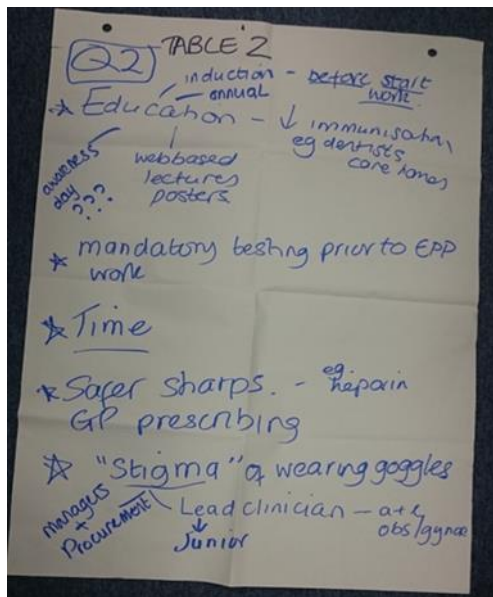 Q2
TABLE 2
induction - before start
work.
annual
* Education - ↓ immunisation
eg dentists
care homes
webbased
lectures
posters
awareness
day
???
* mandatory testing prior to EPP
work
* Time
* Safer sharps. - eg.
heparin
GP prescribing
* "Stigma" of wearing goggles
managers
+
Procurement
Lead clinician - a+e
obs/gynae
↓
Junior